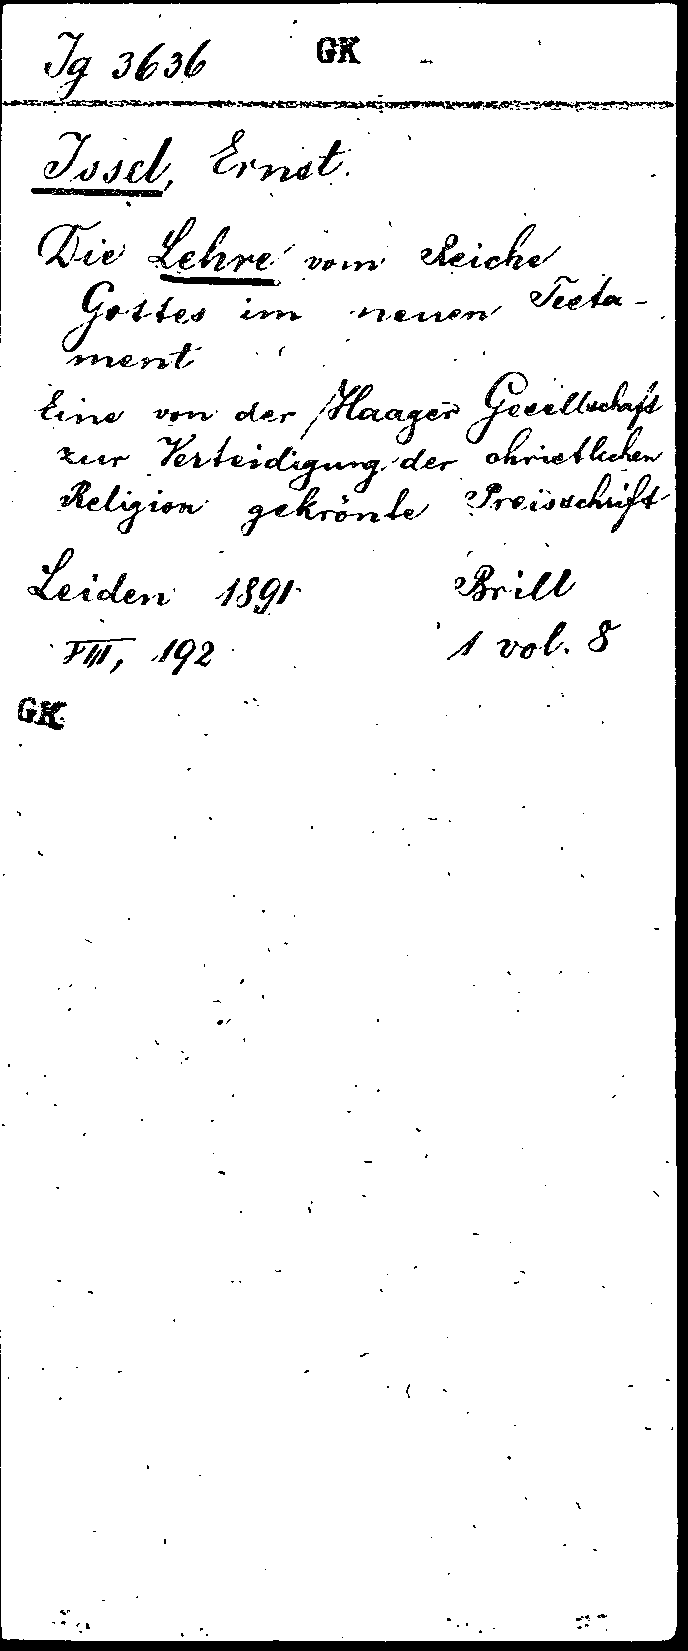 Ig 3636 GK
Issel, Ernst.
Die Lehre vom Reiche
Gottes im neuen Testa-
ment
Eine von der Haager Gesellschaft
zur Verteidigung der christlichen
Religion gekrönte Preisschrift
Leiden 1891 Brill
VIII, 192 1 vol. 8
GK